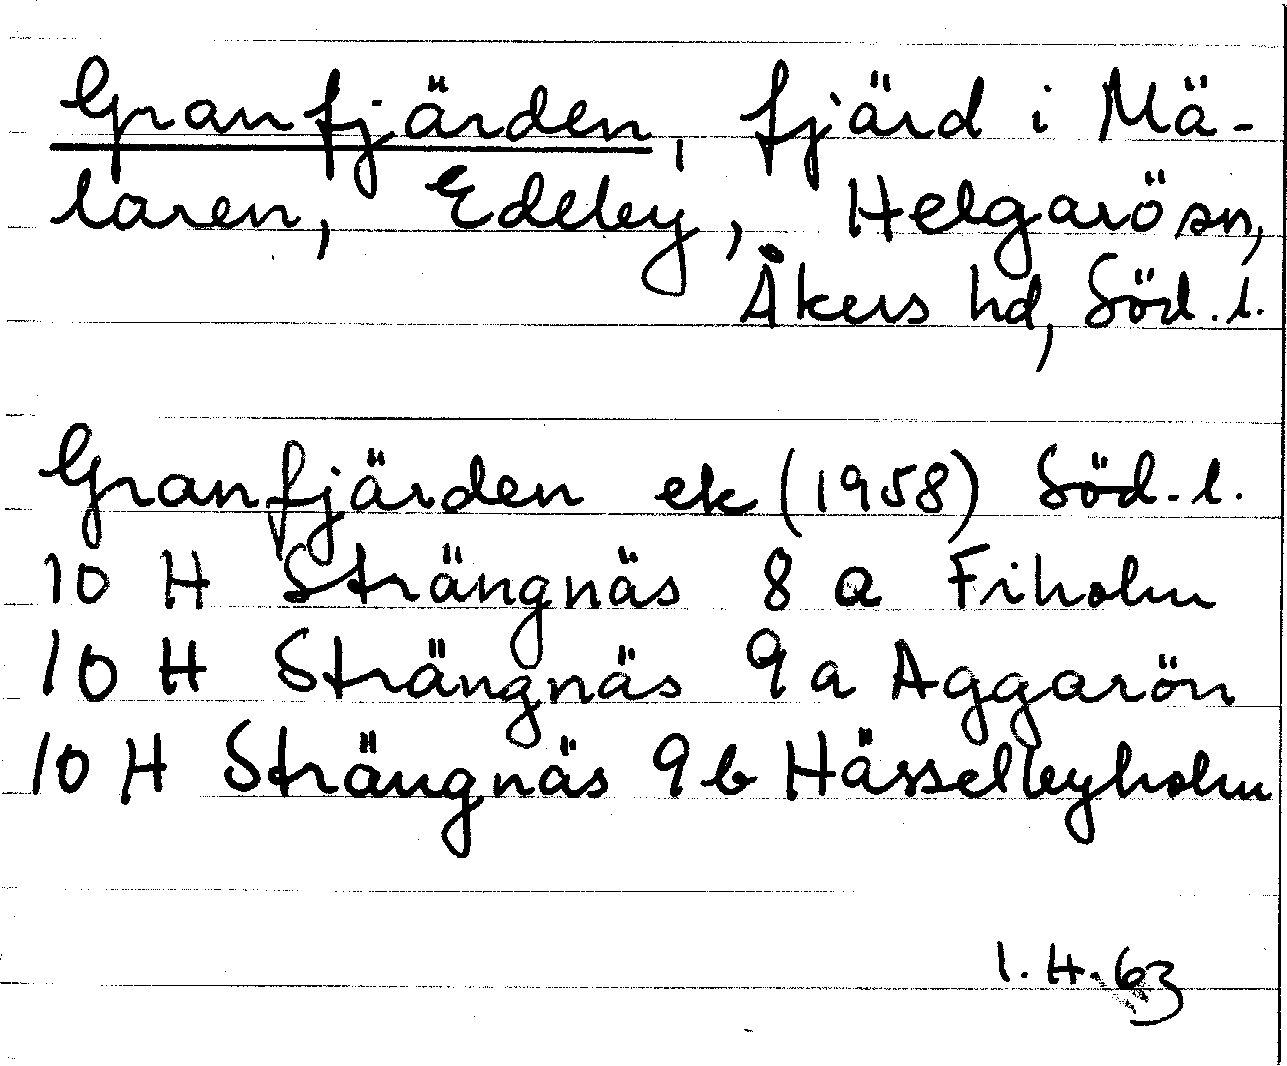 Granfjärden, fjärd i Mä-
laren, Edeby, Helgarö sn,
Åkers hd, Söd. l.
Granfjärden ek (1958) Söd. l.
10 H Strängnäs 8 a Fiholm
10 H Strängnäs 9 a Aggarön
10 H Strängnäs 9 b Hässelbyholm
I. H. 63